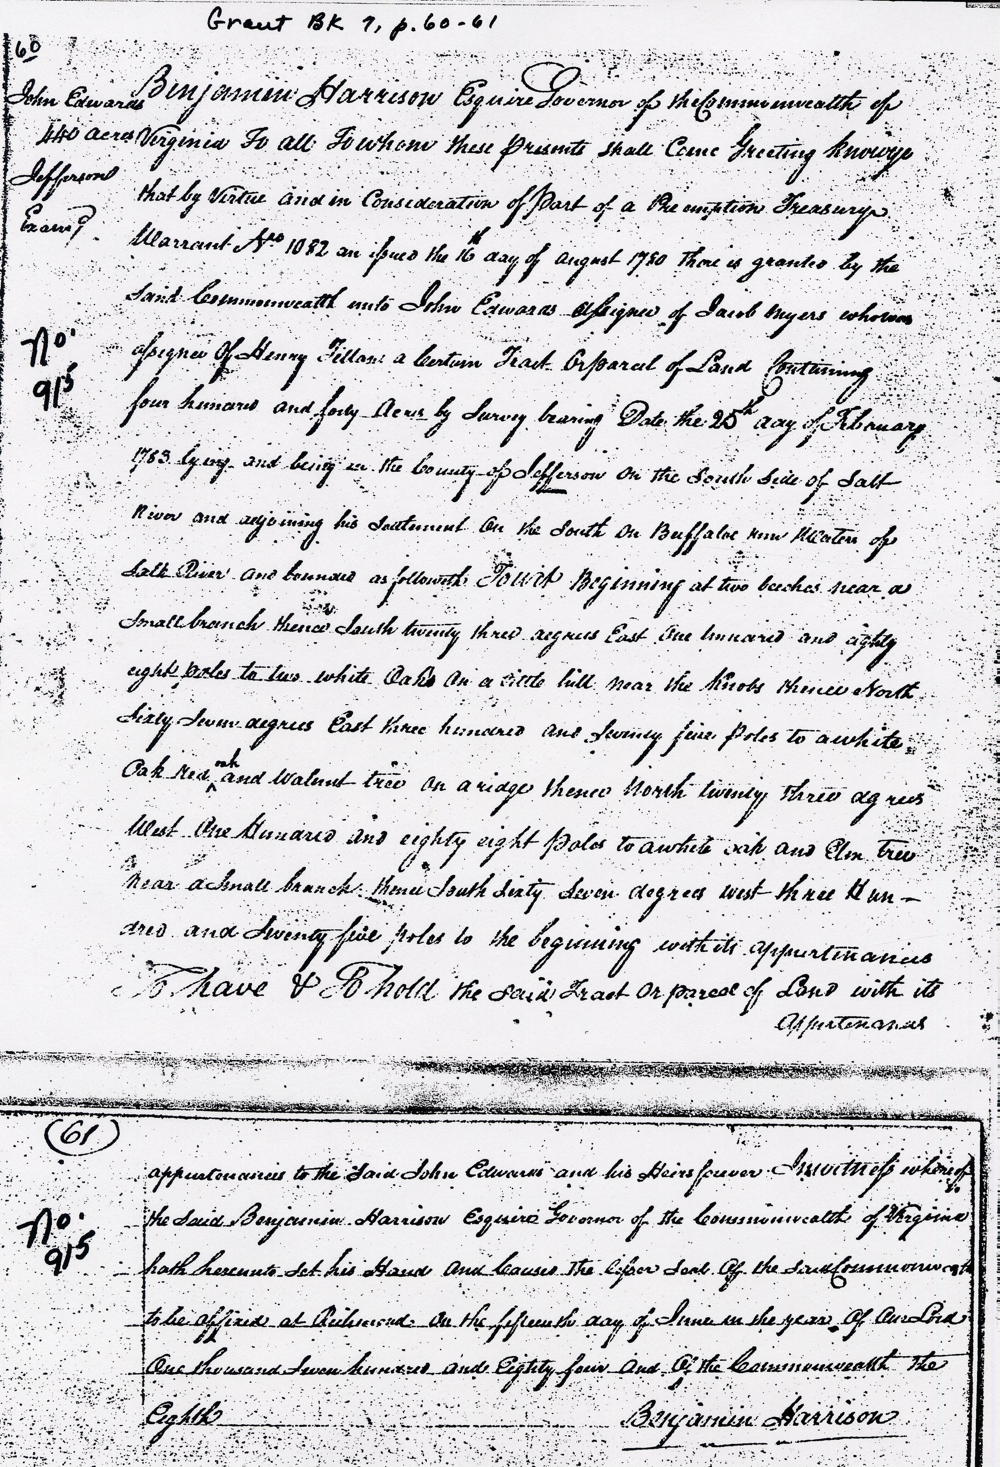 Graut BK 7, p. 60-61
60
John Edwards
440 acres
Jefferson
Exam?
No.
915
Benjamin Harrison Esquire Governor of the Commonwealth of
Virginia To all To whom these presents shall Come Greeting know ye
that by Virtue and in Consideration of Part of a Preemption Treasury
Warrant No 1082 an issued the 16th day of august 1780 there is granted by the
said Commonwealth unto John Edwards assignee of Jacob myers who was
assignee Of Henry a Certain Tract Or parcel of Land Containing
four hundred and forty Acres by Survey bearing Date the 25th day of February
1783 lying and being in the County of Jefferson on the South side of Salt
River and adjoining his Settlement On the South on Buffaloe run Waters of
Salt River and bounded as followeth Towit Beginning at two beeches near a
Small branch thence South twenty three degrees East One hundred and eighty
eight poles to two white Oaks On a little hill near the Knobs thence North
Sixty Seven degrees East three hundred and Seventy five Poles to a white
Oak Red oak and Walnut tree On a ridge thence North twenty three degrees
West One Hundred and eighty eight poles to a white oak and Elm tree
Near a Small branch thence South Sixty Seven degrees west three Hun-
dred and Seventy five poles to the beginning with its appurtenances
To have & To hold the said Tract Or parcel of Land with its
Appurtenances
61
No.
915
appurtenances to the Said John Edwards and his Heirs forever In witness whereof
the Said Benjamin Harrison Esquire Governor of the Commonwealth of Virginia
hath hereunto Set his Hand And Caused the lesser Seal Of the Said Commonwealth
to be affixed at Richmond On the fifteenth day of June in the year Of Our Lord
One thousand Seven hundred and Eighty four And Of the Commonwealth The
Eighth Benjamin Harrison